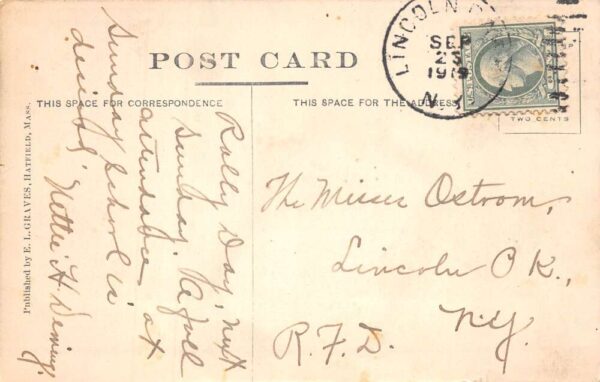 POST CARD
THIS SPACE FOR CORRESPONDENCE
THIS SPACE FOR THE ADDRESS
LINCOLN
SEP
23
1919
N.
TWO CENTS
Published by E. L. GRAVES, HATFIELD, MASS.
Rally Day, next
Sunday. A full
attendance at
Sunday School is
desired,
Nettie H. Deming.
The Misses Ostrom,
Lincoln P K.,
R.F.D. N.Y.